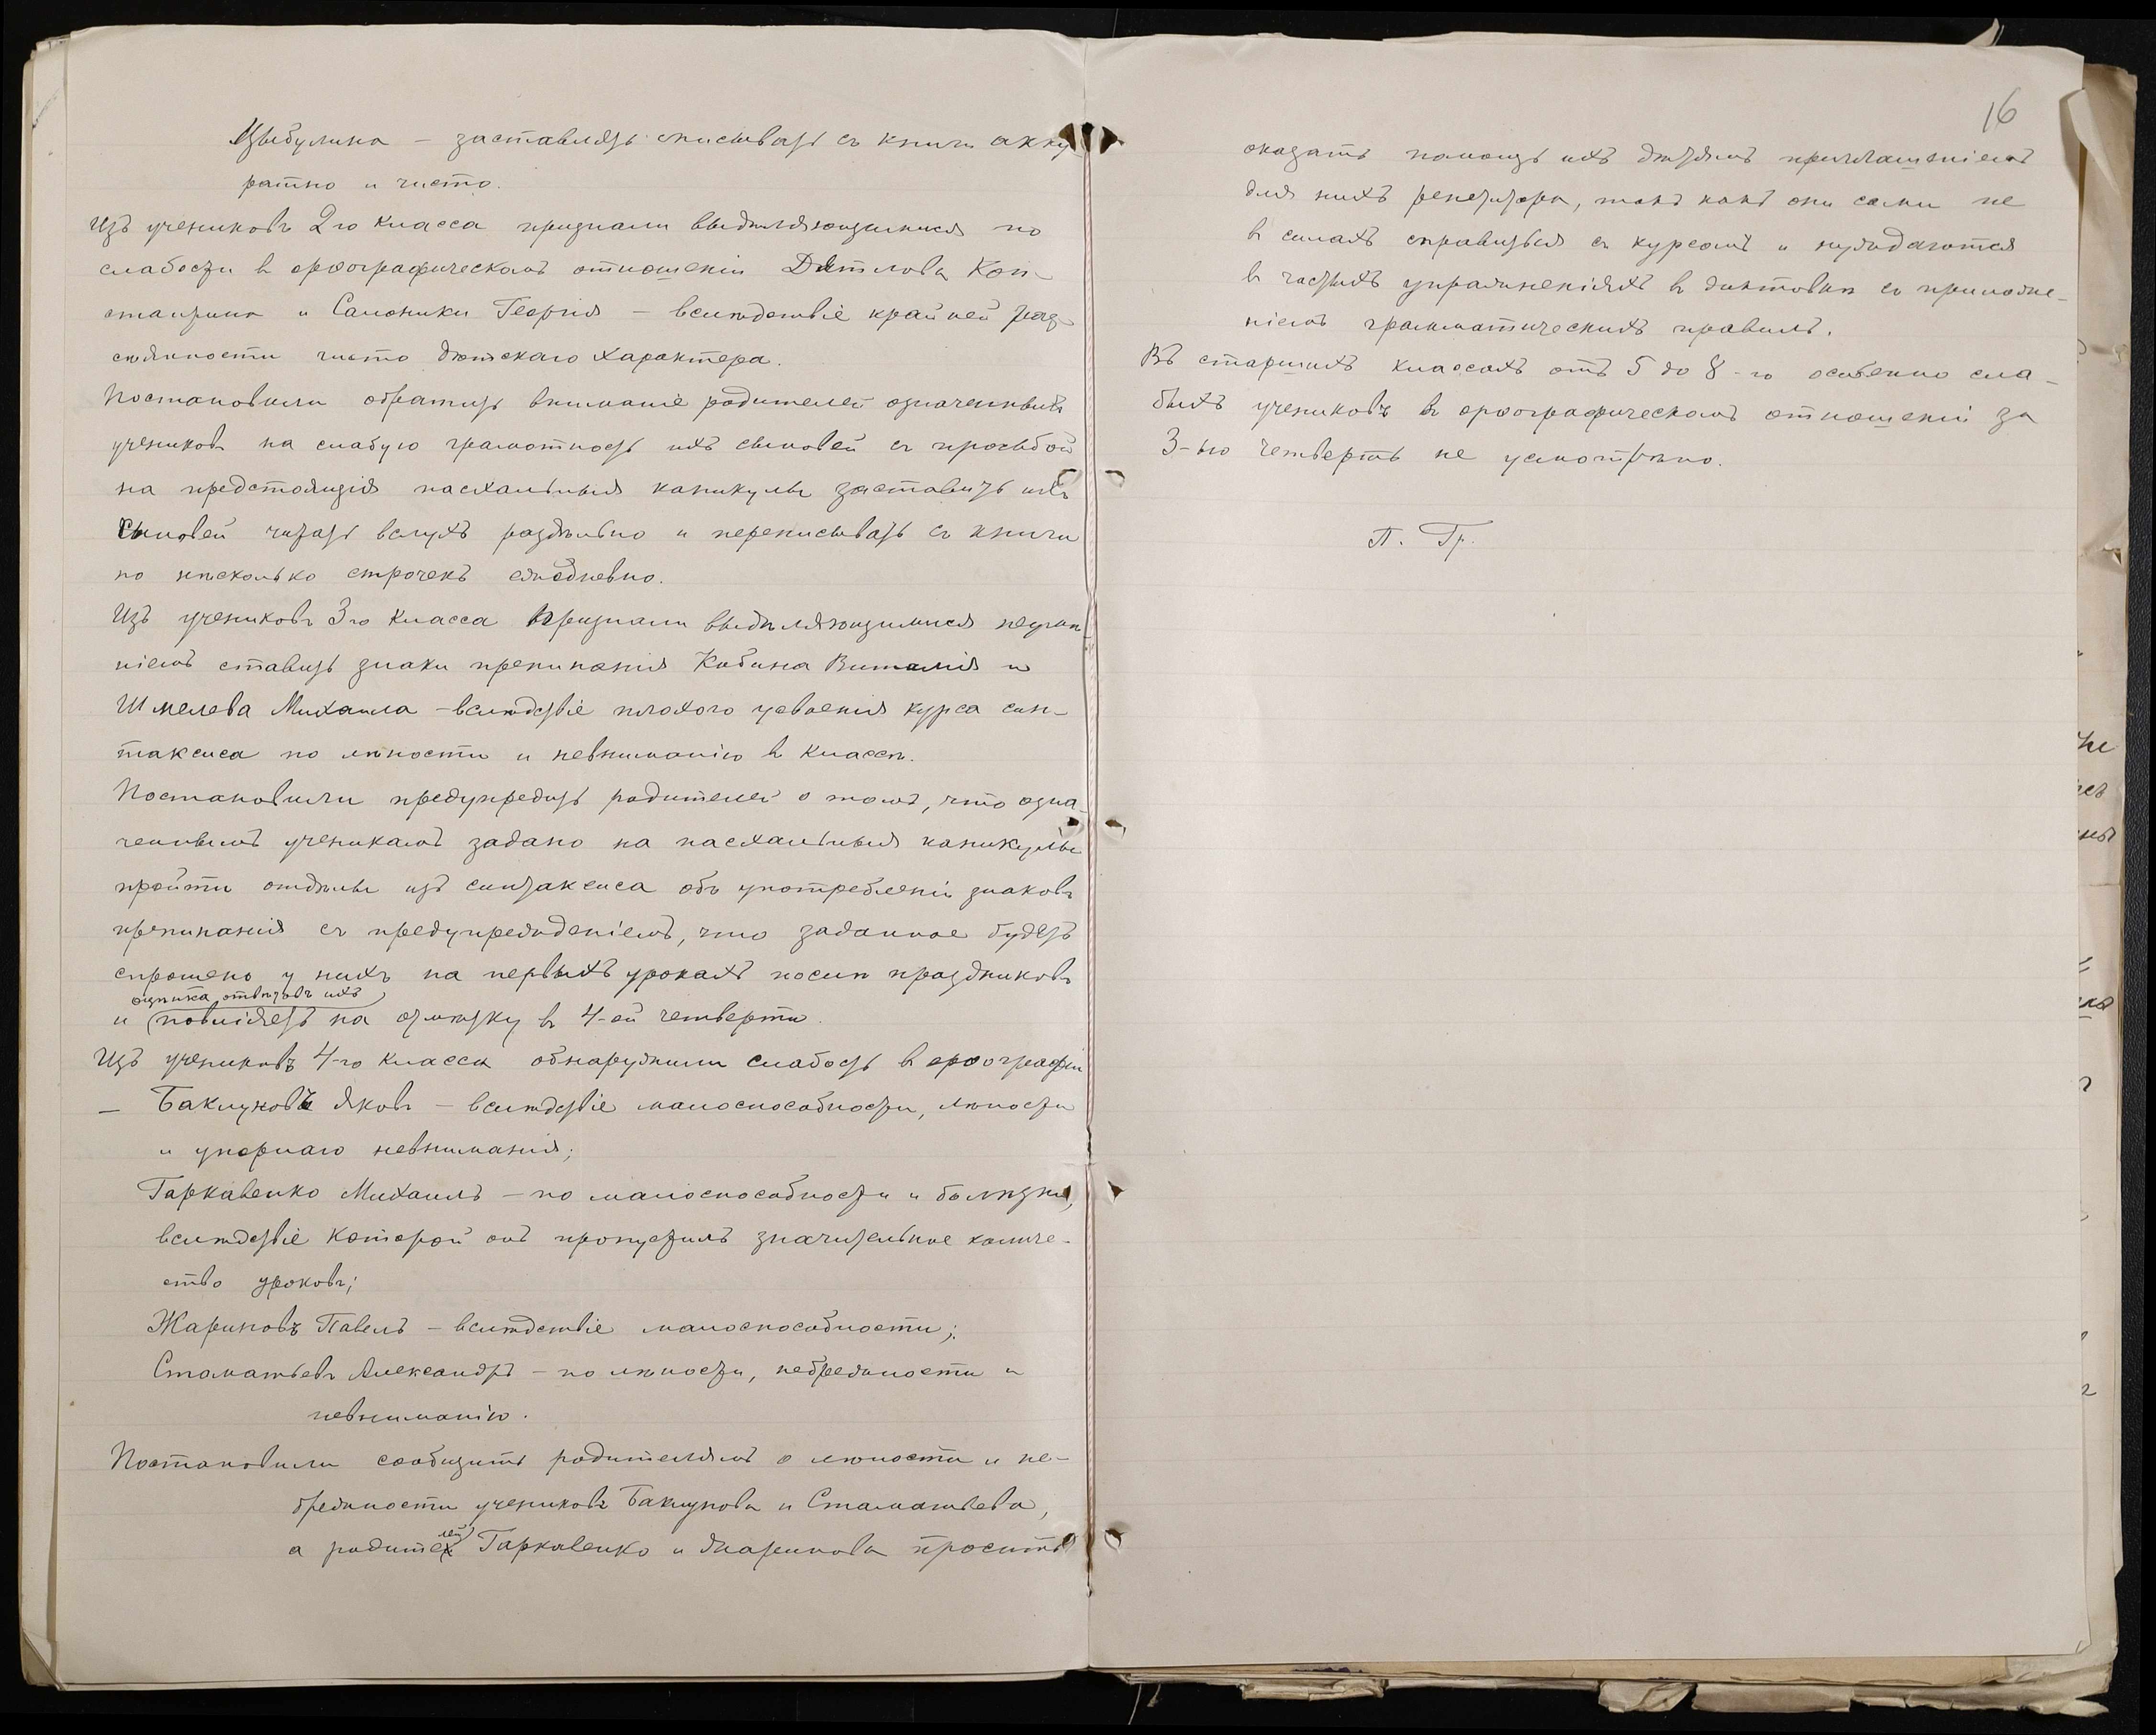 Цыбулина – заставлять списывать съ книги акку
ратно и чисто.
Изъ учениковъ 2го класса признали выдѣляющимися по
слабости въ орѳографическомъ отношеніи Дѣтлова Кон-
стантина и Самоники Георгія – вслѣдствіе крайней раз-
сѣянности чисто дѣтскаго характера.
Постановили обратить вниманіе родителей означенныхъ
учениковъ на слабую грамотность ихъ сыновей съ просьбой
на предстоящія пасхальныя каникулы заставить ихъ
сыновей читать вслухъ раздѣльно и переписывать съ книги
по нѣсколько строчекъ ежедневно.
Изъ учениковъ 3го класса признали выдѣляющимися неумѣ
ніемъ ставить знаки препинанія Кобина Виталія и
Шмелева Михаила – вслѣдствіе плохого усвоенія курса син-
таксиса по лѣности и невниманію въ классѣ.
Постановили предупредить родителей о томъ, что озна-
ченнымъ ученикамъ задано на пасхальныя каникулы
пройти отдѣлы изъ синтаксиса объ употребленіи знаковъ
препинанія съ предупрежденіемъ, что заданное будетъ
спрошено у нихъ на первыхъ урокахъ послѣ праздниковъ
оцѣнка отвѣтовъ ихъ
и повліяетъ на отмѣтку въ 4-ой четверти.
Изъ учениковъ 4-го класса обнаружили слабость въ орѳографіи
– Баклуновъ Яковъ – вслѣдствіе малоспособности, лѣности
и упорнаго невниманія;
Гаркавенко Михаилъ – по малоспособности и болѣзни,
вслѣдствіе которой онъ пропустилъ значительное количе-
ство уроковъ;
Жариновъ Павелъ – вслѣдствіе малоспособности;
Стаматьевъ Александръ – по лѣности, небрежности и
невниманію.
Постановили сообщить родителямъ о лѣности и не-
брежности учениковъ Баклунова и Стаматьева,
а родителей Гаркавенко и Жаринова просить
16
оказать помощь ихъ дѣтямъ приглашеніемъ
для нихъ репетитора, такъ какъ они сами не
въ силахъ справиться съ курсомъ и нуждаются
въ частыхъ упражненіяхъ въ диктовкѣ съ примѣне-
ніемъ грамматическихъ правилъ.
Въ старшихъ классахъ отъ 5 до 8-го особенно сла-
быхъ учениковъ въ орѳографическомъ отношеніи за
3-ью четверть не усмотрѣно.
П. Гр.